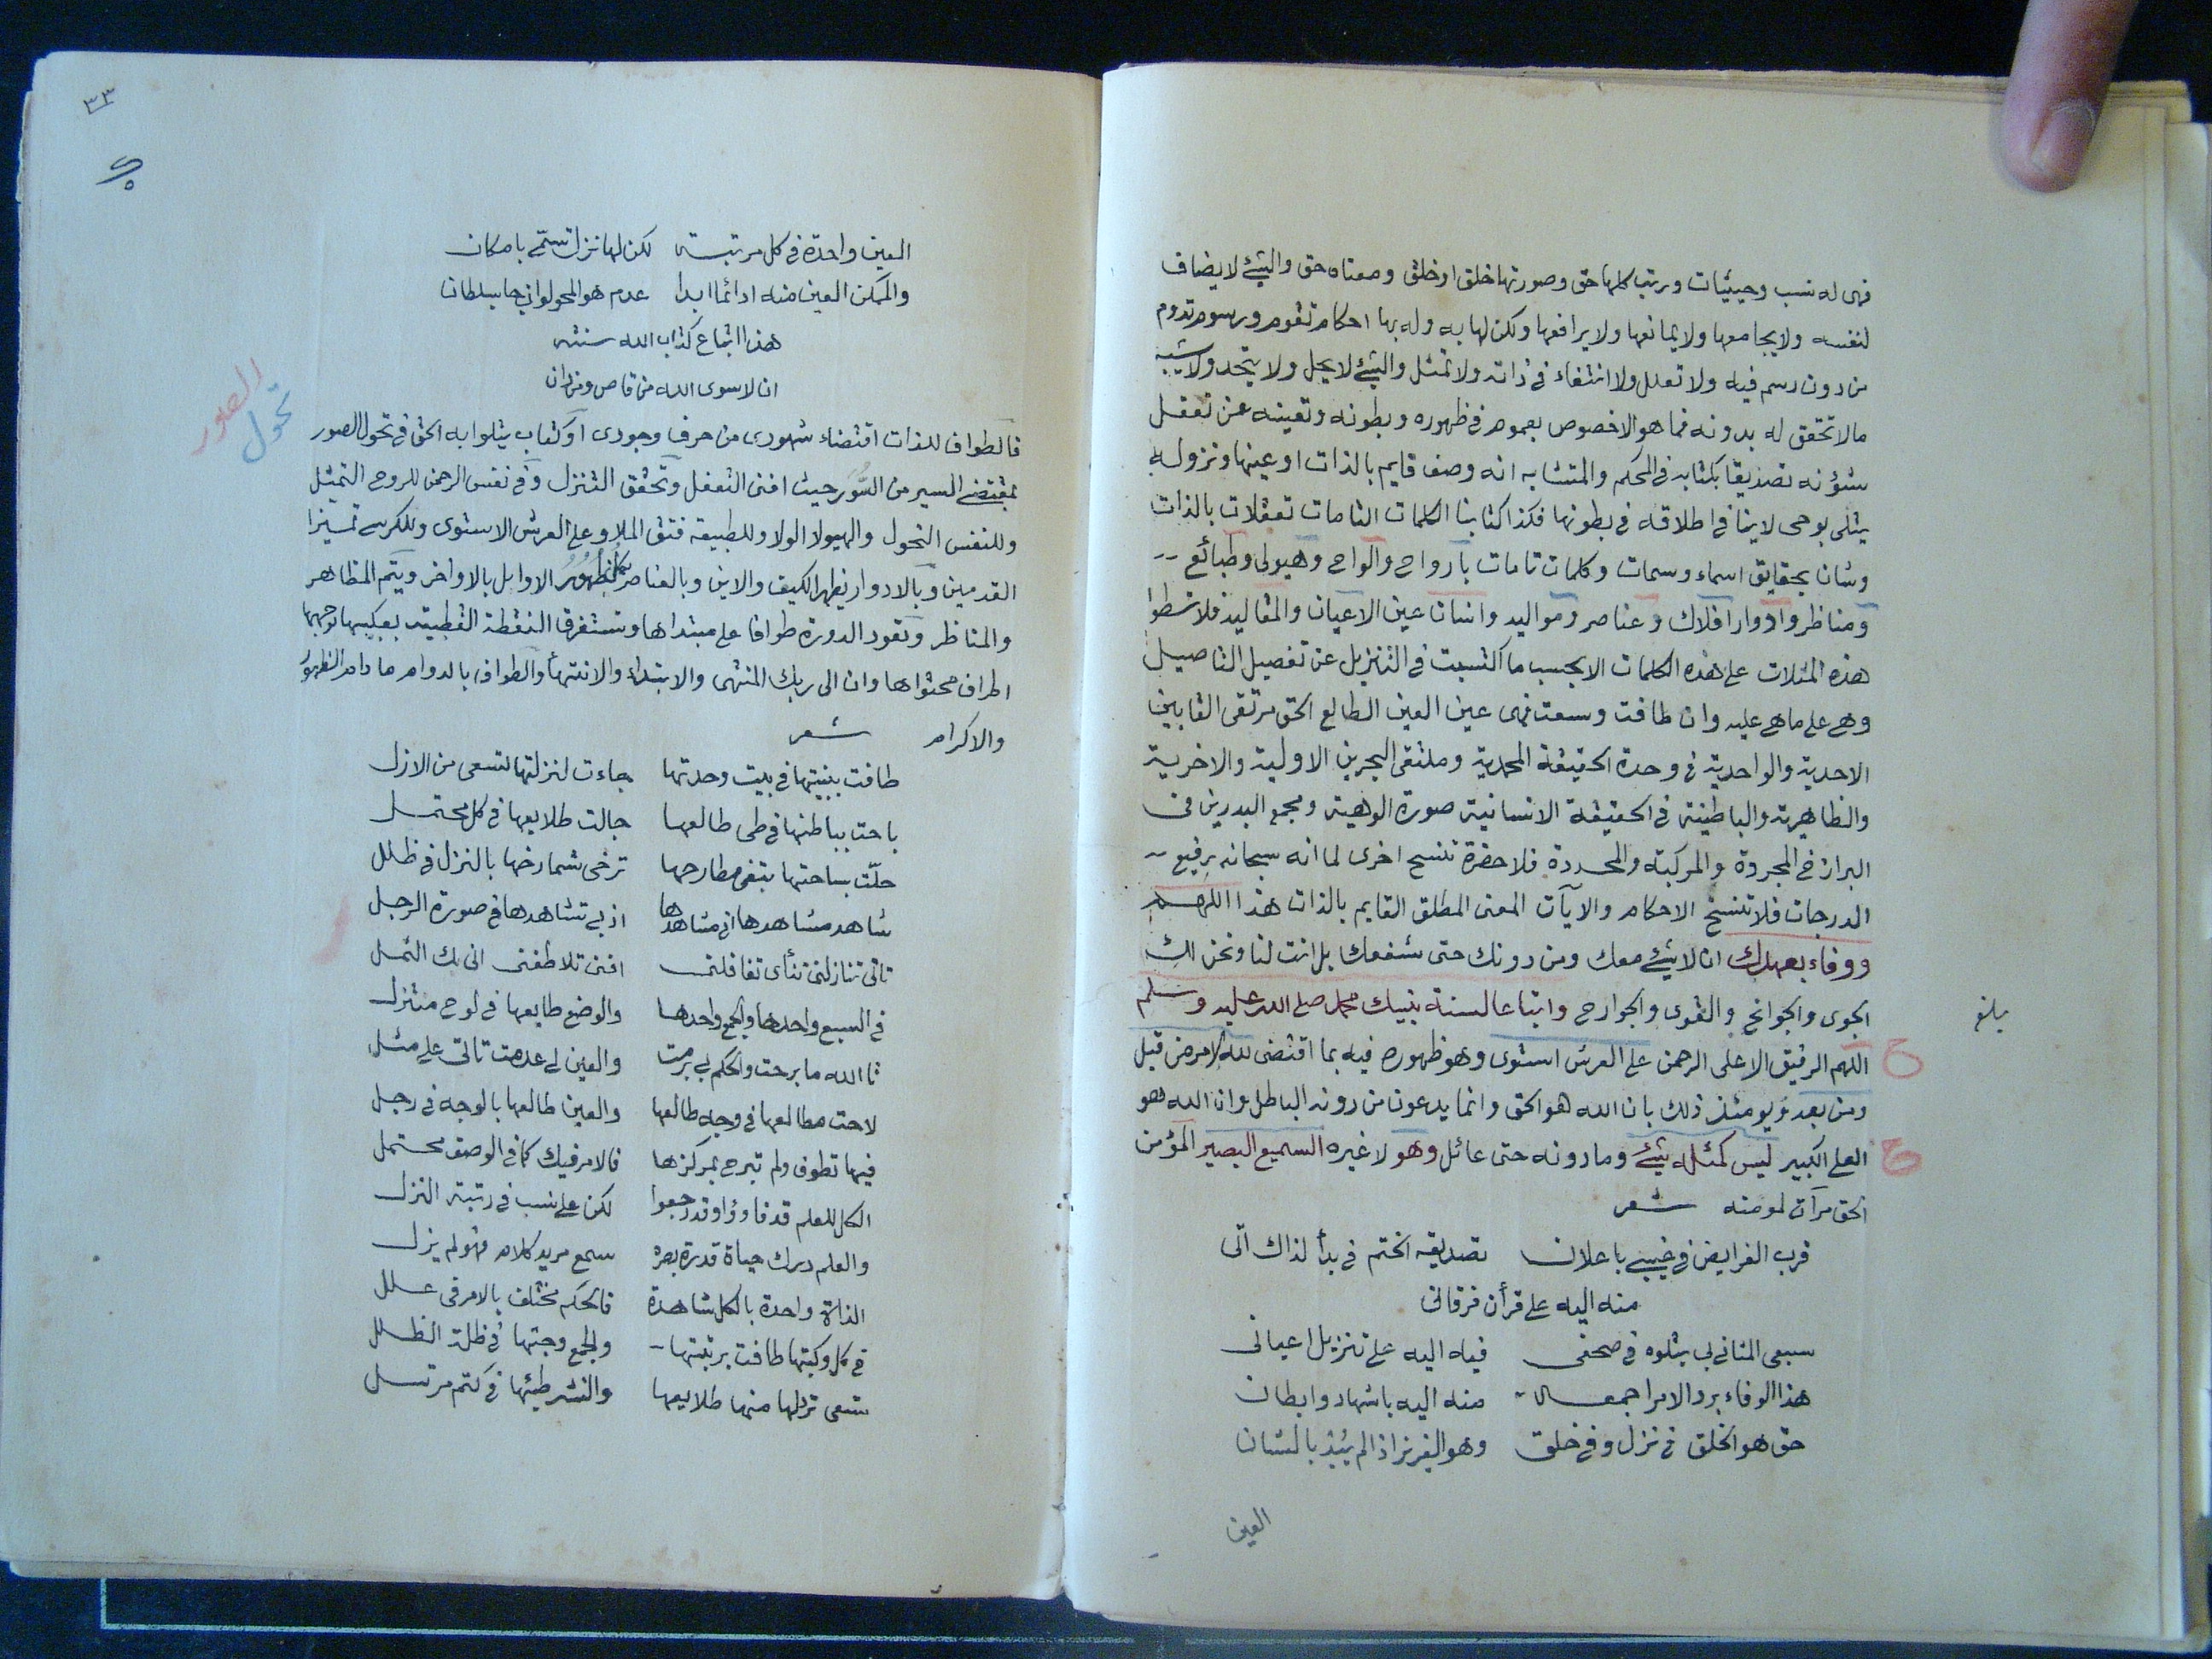 فهى له نسب وحيثيات ورتب كلها حق وصورتها خلق او خلق ومعناه حق والشئ لا يضاف
لنفسه ولا يجامعها ولا يمانعها ولا يرافعها ولكن لها به وله بها احكام تقوم ورسوم تدوم
من دون رسم فيه ولا تعلل ولا انتفاء فى ذاته ولا تمثل والشئ لا يحل ولا يتحد ولا يشبه
مالا تحقق له بدونه فما هو الا خصوص بعموم فى ظهوره وبطونه وتعينه عن تعقل
شؤنه تصديقا بكتابه فى المحكم والمتشابه انه وصف قايم بالذات او عينها ونزوله
يتلى بوحى لاينافى اطلاقه فى بطونها فكذا كتابنا الكلمات التامات تعقلات بالذات
وشان بحقايق اسماء وسمات وكلمات تامات بارواح والواح وهيولى وطبائع
ومناظر وادوار افلاك وعناصر ومواليد وانسان عين الاعيان والمقاليد فلا تسطوا
هذه المثلات على هذه الكلمات الا بحسب ما اكتسبت فى التنزيل عن تفصيل التاصيل
وهى على ماهى عليه وان طافت وسعت فهى عين العين الطالع الحق مرتقى القابين
الاحدية والواحدية فى وحدة الحقيقة المحمدية وملتقى البحرين الاولية والاخرية
والظاهرية والباطنية فى الحقيقة الانسانية صورة الوهية ومجمع البدرين فى
البرازخ المجردة والمركبة والمحددة فلا حضرة تنسخ اخرى لما انه سبحانه رفيع
الدرجات فلا تنسخ الاحكام والآيات المعنى المطلق القايم بالذات هذا اللهم
ووفاء بعهدك ان لا شئ معك ومن دونك حتى شفعك بل انت لنا ونحن لك
الجوى والجوانح والقوى والجوارح واتباعا لسنة نبيك محمد صلى الله عليه وسلم
بلغ
اللهم الرفيق الاعلى الرحمن على العرش استوى وهو ظهوره فيه بما اقتضى لله الامر من قبل
ومن بعد ويومئذ ذلك بان الله هو الحق وانما يدعون من دونه الباطل وان الله هو
العلى الكبير ليس كمثله شئ وما دونه حتى عائل وهو لا غيره السميع البصير المؤمن
الحق مرآة لمومنه شعر
قرب الفرايض فى غيبى باعلان تصديقه الختم فى بدأ لذاك اتى
منه اليه على قرأن فرقانى
سبعى المثانى لى يتلوه فى صحفى فيه اليه على تنزيل اعيانى
هذا الوفاء برد الامر اجمعه منه اليه باشهاد وابطان
حق هو الخلق فى نزل وفى خلق
العين
٣٣
العين واحدة فى كل مرتبة لكن لها نزل تستمى بامكان
والممكن العين منه ادائما ابدا عدم هو المحو لوانى جا بسلطان
هذا اتباع كتاب الله سنته
ان لا سوى الله من قاص ومن دان
تحول الصور
فالطواف للذات اقتضاء شهودى من حرف وجودى او كتاب يتلوا به الحق فى تحول الصور
بمقتضى السير من السُّوَر حيث افنى التعقل وتحقق التنزل وفى نفس الرحمن للروح التمثل
وللنفس التحول والهيولا الولا وللطبيعة فتق الملا وعلى العرش الاستوى وللكرسى تميزا
القدمين وبالادوار يظهر الكيف والاين وبالعناصر يكمل ظهور الاوايل بالاواخر ويتم المظاهر
والمناظر وتعود الدورة طوافا على مبتداها وتستغرق النقطة القطبية
اطراف محتواها وان الى ربك المنتهى والابتداء والانتهأ والطواف بالدوام مادام الظهور
والاكرام شعر
طافت ببنيتها فى بيت وحدتها جاءت لنزلتها لتسعى من الازل
باحت بباطنها فى طى طالعها جالت طلايعها فى كل محتمل
حلّت بساحتها تبغى مطارحها ترخى شمارخها بالنزل فى ظلل
شاهد مشاهدها انى مشاهدها اذ بى تشاهدها فى صورة الرجل
تاتى تنازلنى تنأى تغافلنى افنى تلاطفنى انى بك الثمل
فى السبع واحدها والجمع واحدها والوضع طابعها فى لوح منتزل
تا الله ما برحت والحكم بى برمت والعين لى عدمت تاتى على مثل
لاحت مطالعها فى وجه طالعها والعين طالعها بالوجه فى رجل
فيها تطوف ولم تبرح بمركزها فالامر فيك كما فى الوصف محتمل
الكل للعلم قد فاوؤا وقد رجعوا لكن على نسب فى رتبة النزل
والعلم درك حياة قدرة بصر سمع مريد كلام فهو لم يزل
الذاة واحدة بالكل شاهدة فالحكم مختلف بالامر فى علل
فى كل وكبتها طافت برتبتها والجمع وجتها فى ظلة الظلل
تسعى تردلها منها طلايعها والنشر طيئها فى كتم مرتسل